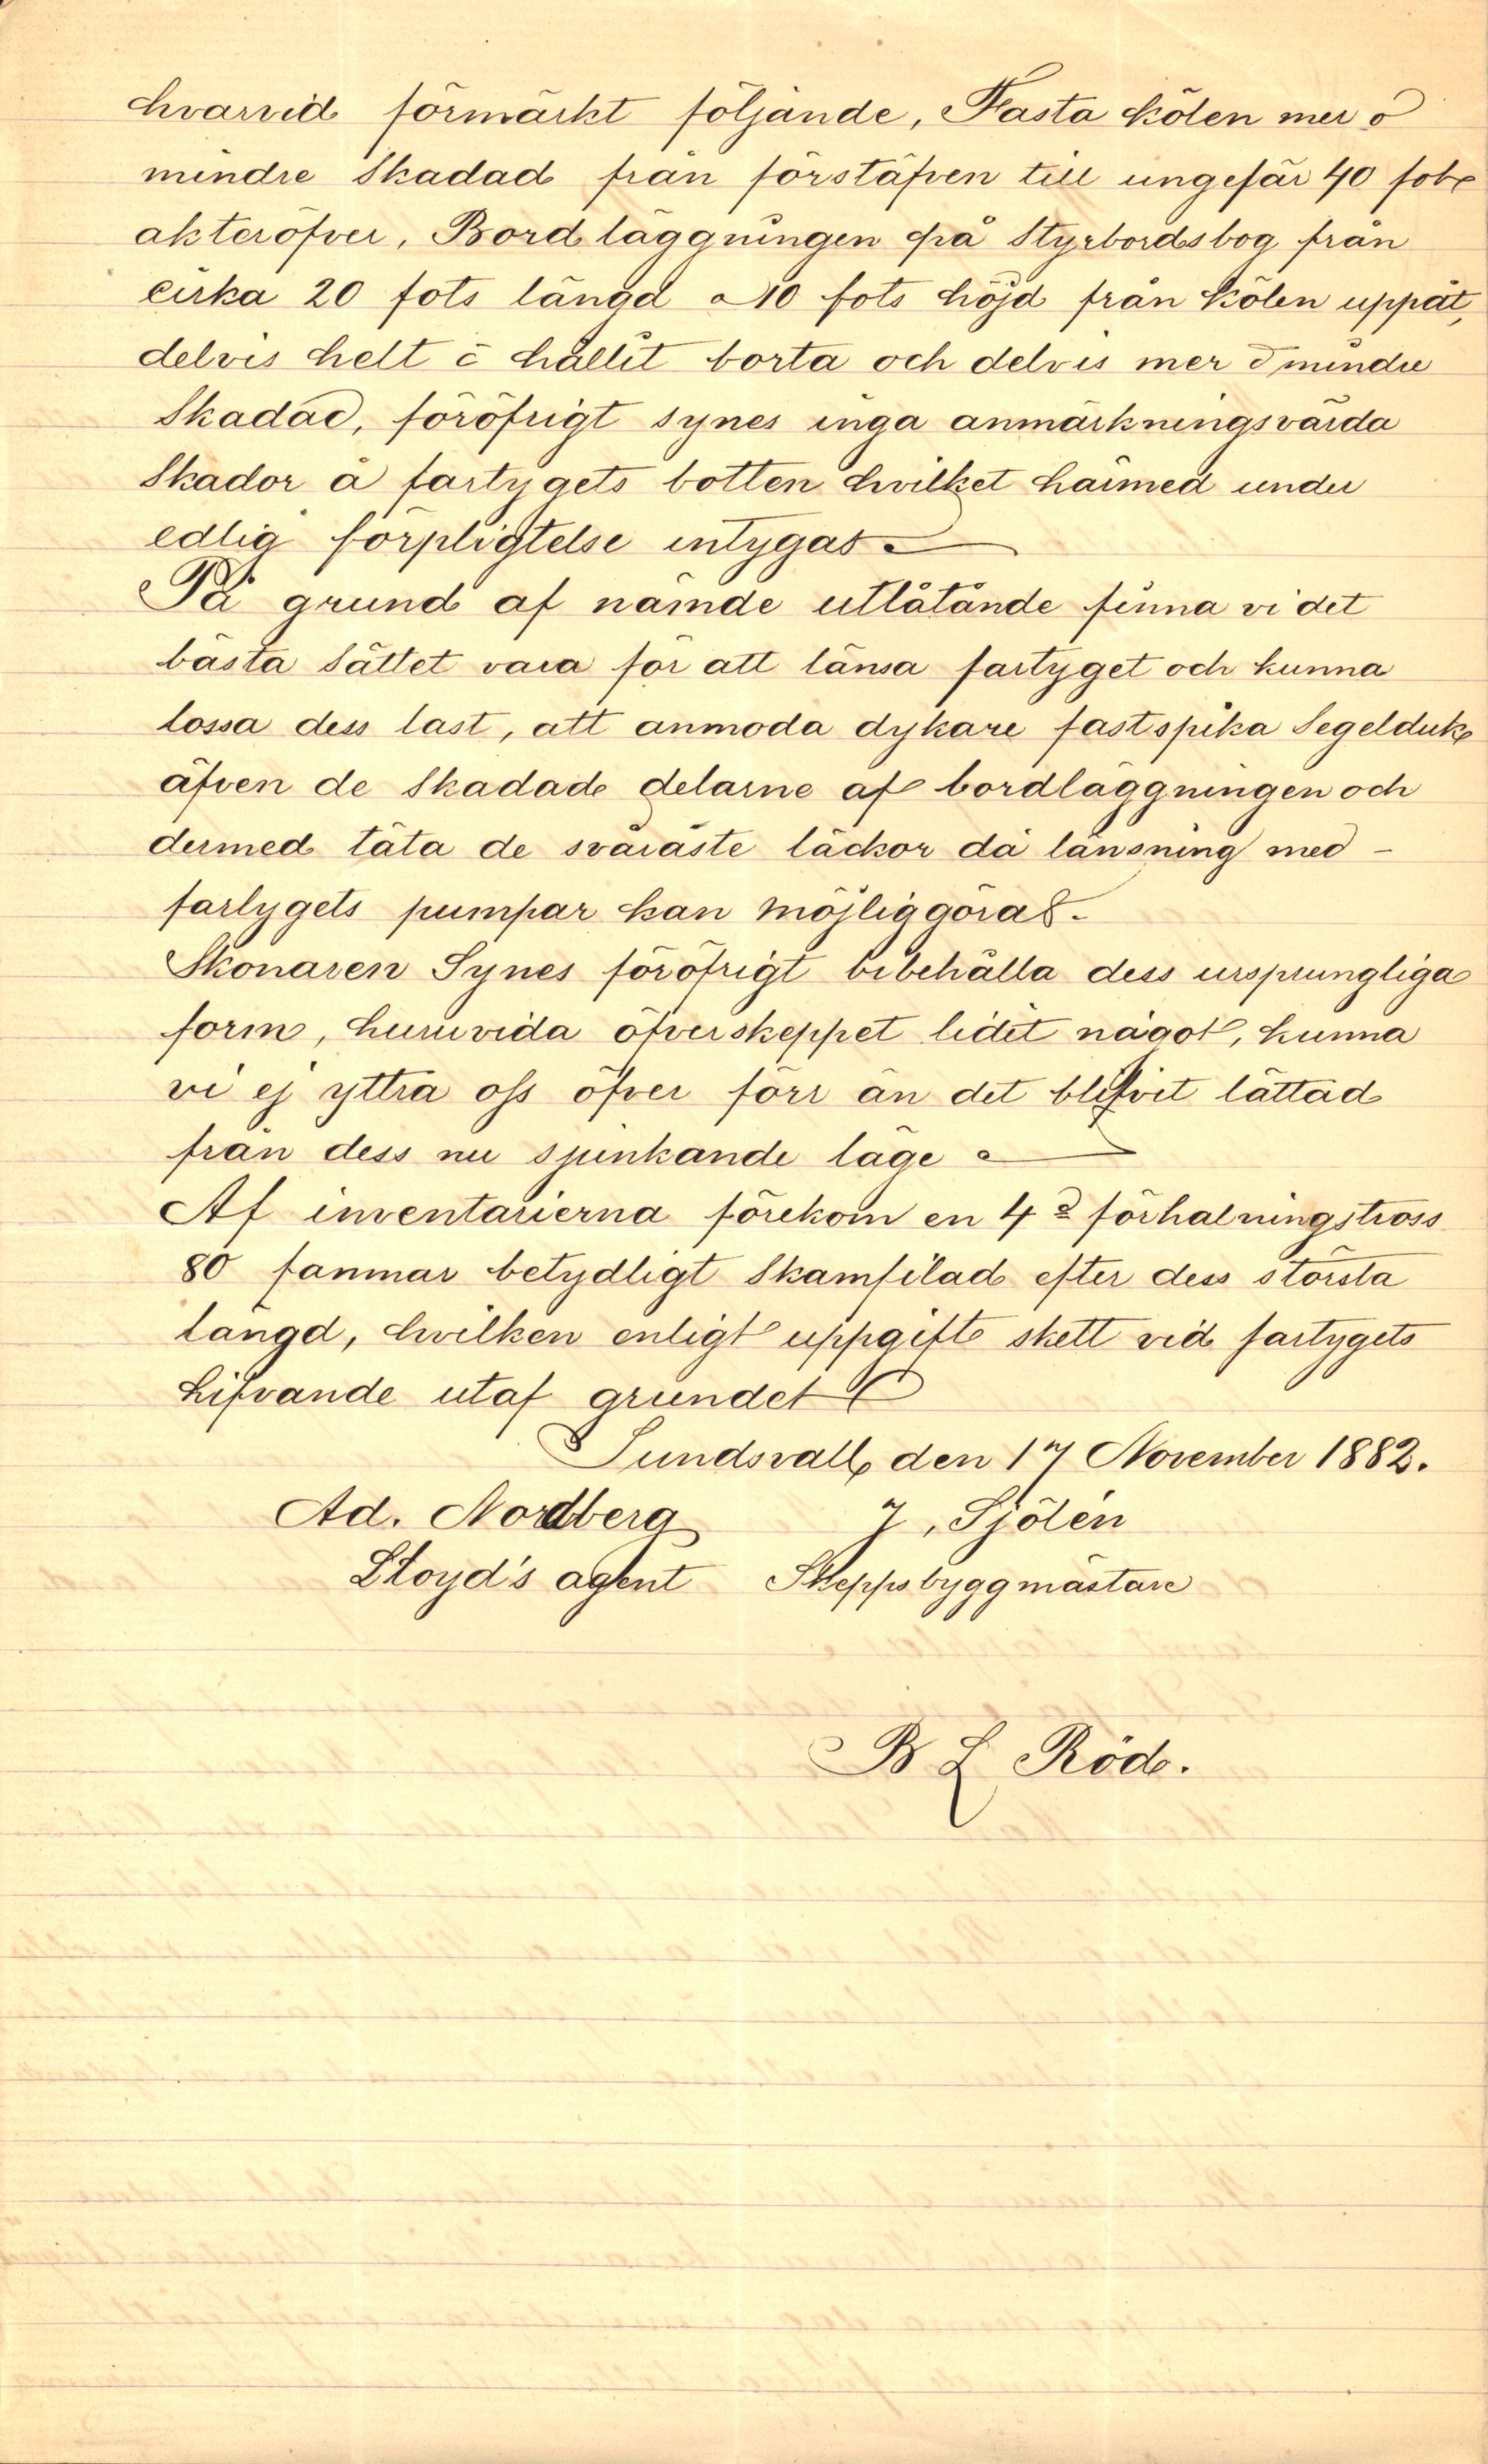 hvarvid förmärkt följande, Fasta kölen mer o
mindre Skadad från förstäfven till ungefär 40 fot
akteröfver, Bordläggningen på Styrbordsbog från
cirka 20 fots längd a 10 fots höjd från kölen uppåt,
delvis helt o hållit borta och delvis mer o mindre
Skadad, föröfrigt synes inga anmärkningsvärda
Skador å fartygets botten hvilket härmed under
edlig förpligtelse intygas
På grund af nämde utlåtande finna vi det
bästa Sättet vara för att länsa fartyget och kunna
lossa dess last, att anmoda dykare fastspika Segelduk
äfven de Skadade delarne af bordläggningen och
dermed täta de svåraste läckor då länsning med -
fartygets pumpar kan möjliggöras.
Skonaren Synes föröfrigt bibehålla dess ursprungliga
form, huruvida öfverskeppet lidit något, kunna
vi ej yttra oss öfver förr än det blifvit lättad
från dess nu sjunkande läge
Af inventarierna förekom en 4 förhalningstross
80 famnar betydligt Skamfilad efter dess största
längd, hvilken enligt uppgift skett vid fartygets
hifvande utaf grundet
Sundsvall den 17 November 1882.
Ad. Nordberg J, Sjölén
Lloyd's agent Skeppsbyggmästare
B L Röd.